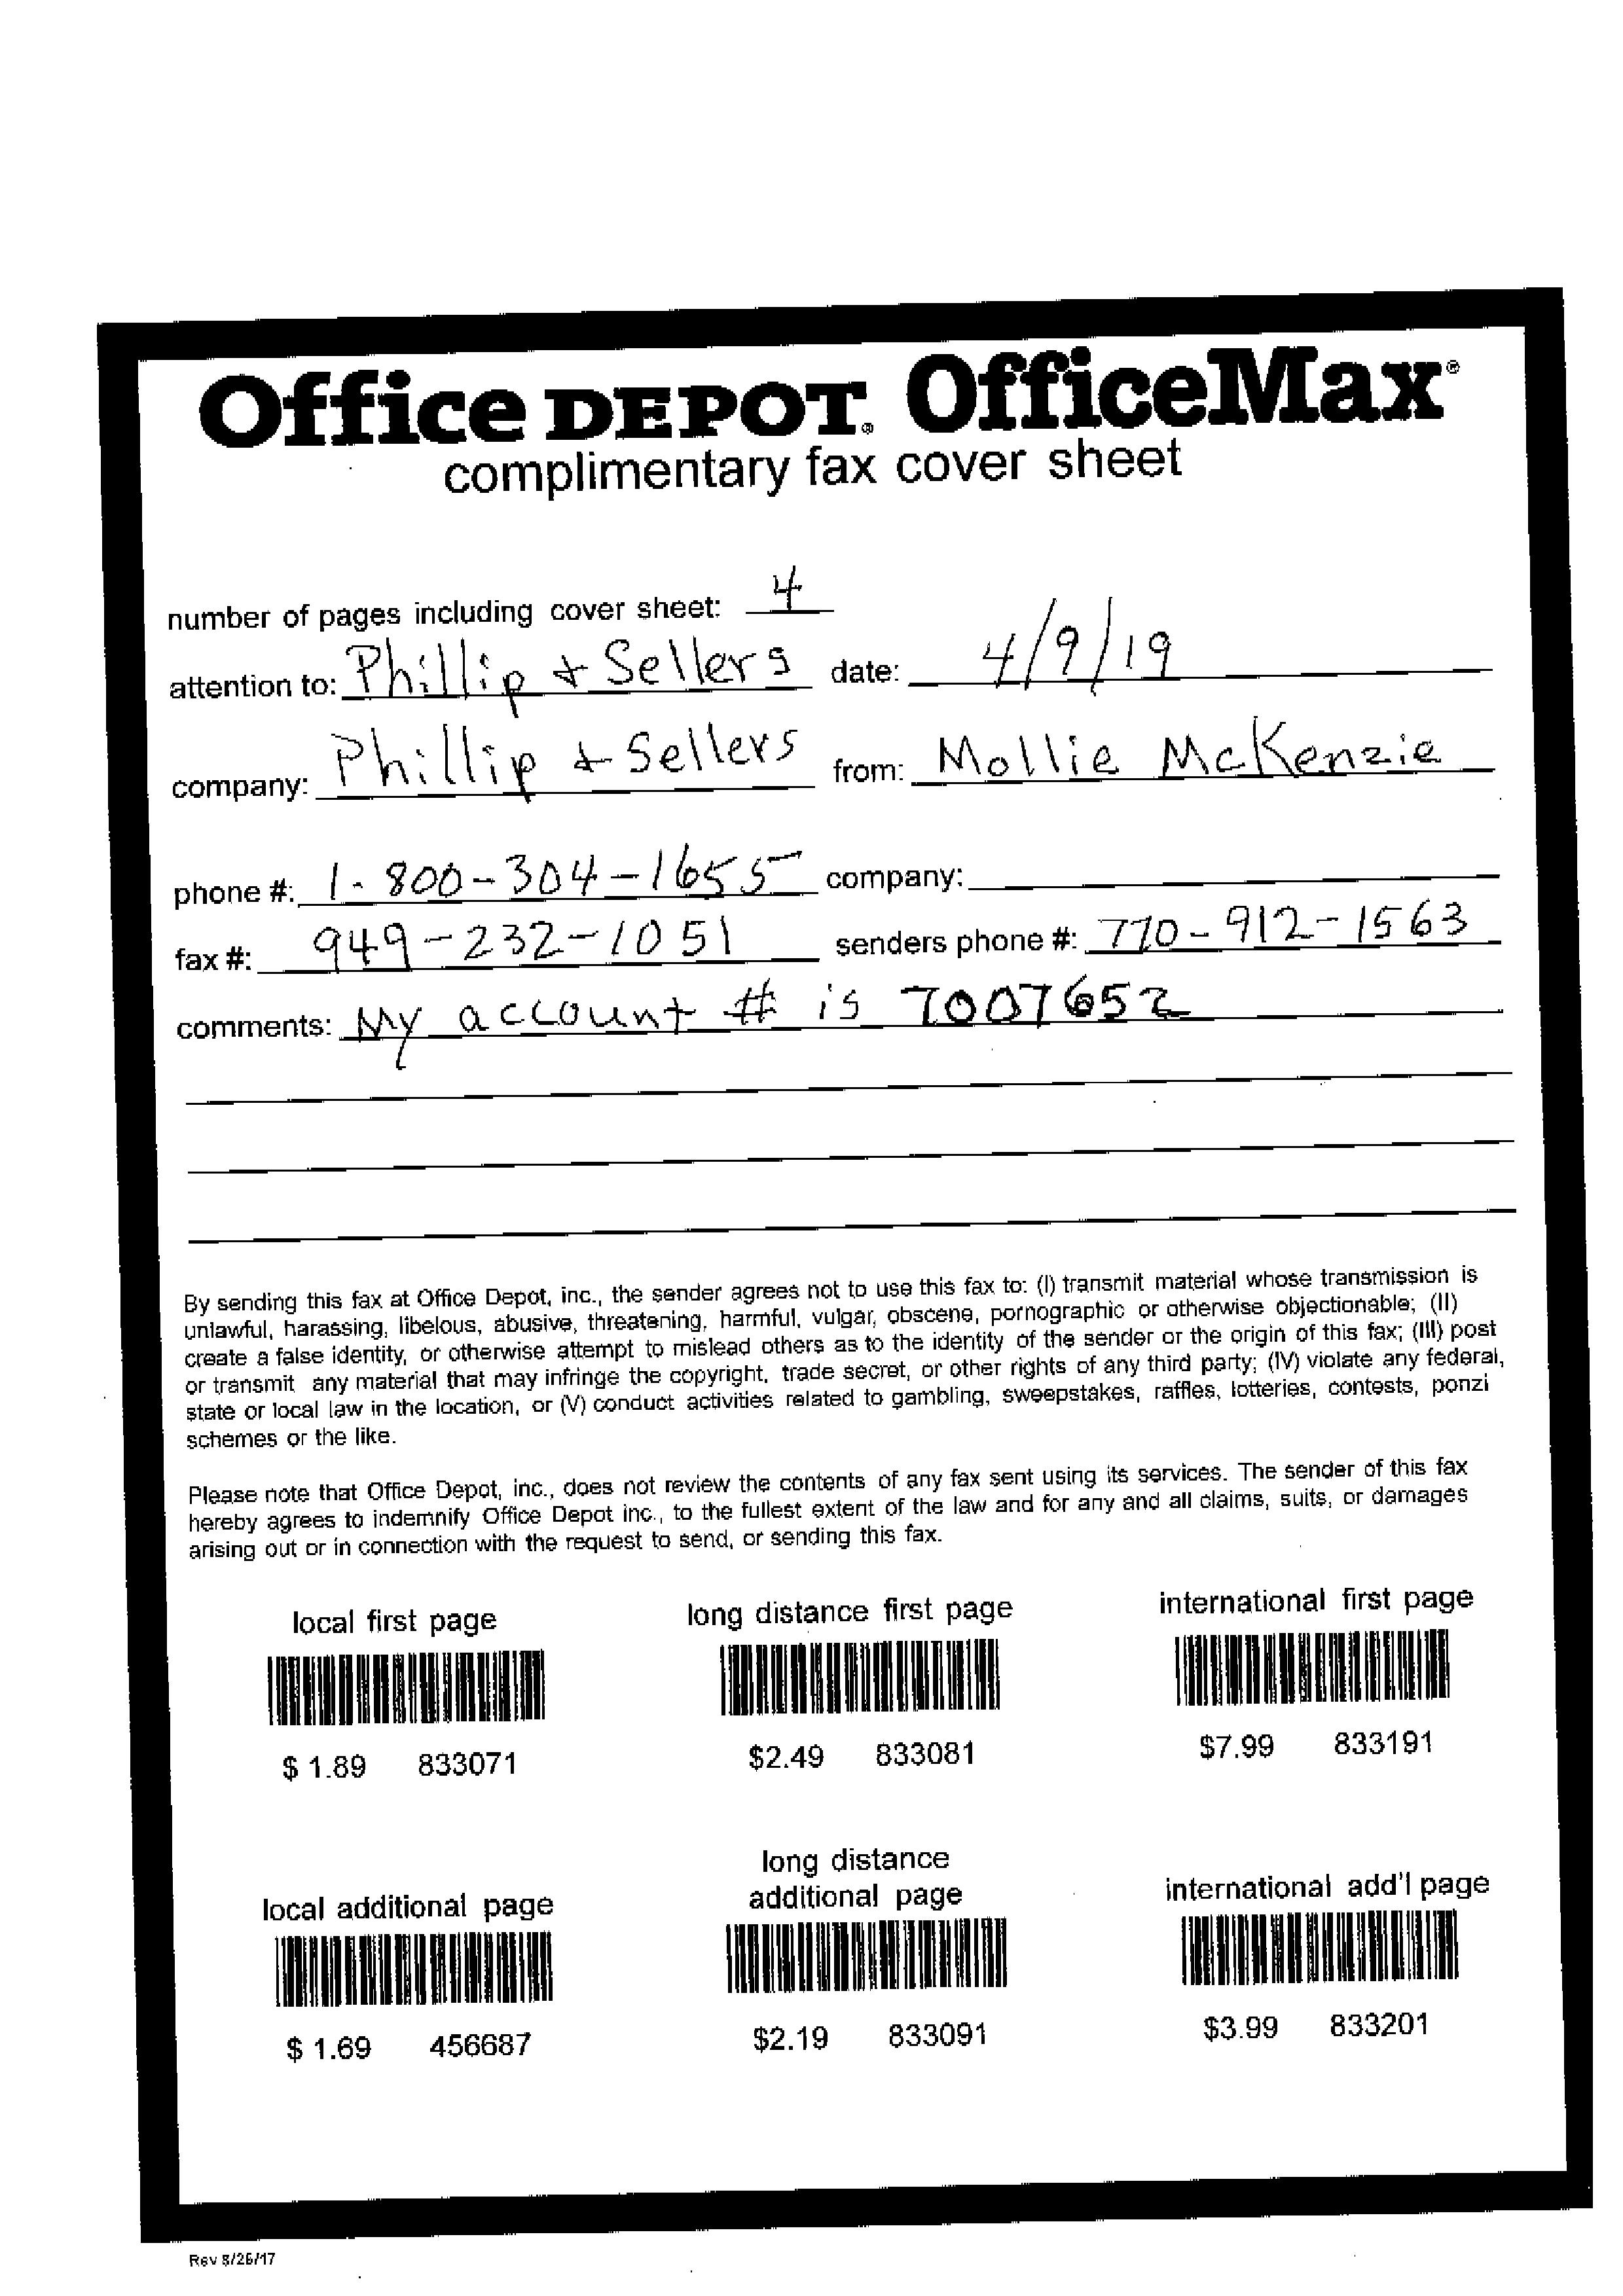 Office DEPOT® OfficeMax®
complimentary fax cover sheet
number of pages including cover sheet: 4
attention to: Phillip + Sellers date: 4/9/19
company: Phillip + Sellers from: Mollie McKenzie
phone #: 1-800-304-1655 company:
fax #: 949-232-1051 senders phone #: 770-912-1563
comments: My account # is 7007652
By sending this fax at Office Depot, inc., the sender agrees not to use this fax to: (I) transmit material whose transmission is
unlawful, harassing, libelous, abusive, threatening, harmful, vulgar, obscene, pornographic or otherwise objectionable; (II)
create a false identity, or otherwise attempt to mislead others as to the identity of the sender or the origin of this fax; (III) post
or transmit any material that may infringe the copyright, trade secret, or other rights of any third party; (IV) violate any federal,
state or local law in the location, or (V) conduct activities related to gambling, sweepstakes, raffles, lotteries, contests, ponzi
schemes or the like.
Please note that Office Depot, inc., does not review the contents of any fax sent using its services. The sender of this fax
hereby agrees to indemnify Office Depot inc., to the fullest extent of the law and for any and all claims, suits, or damages
arising out or in connection with the request to send, or sending this fax.
local first page long distance first page international first page
$ 1.89 833071 $2.49 833081 $7.99 833191
long distance
local additional page additional page international add'l page
$ 1.69 456687 $2.19 833091 $3.99 833201
Rev 8/26/17